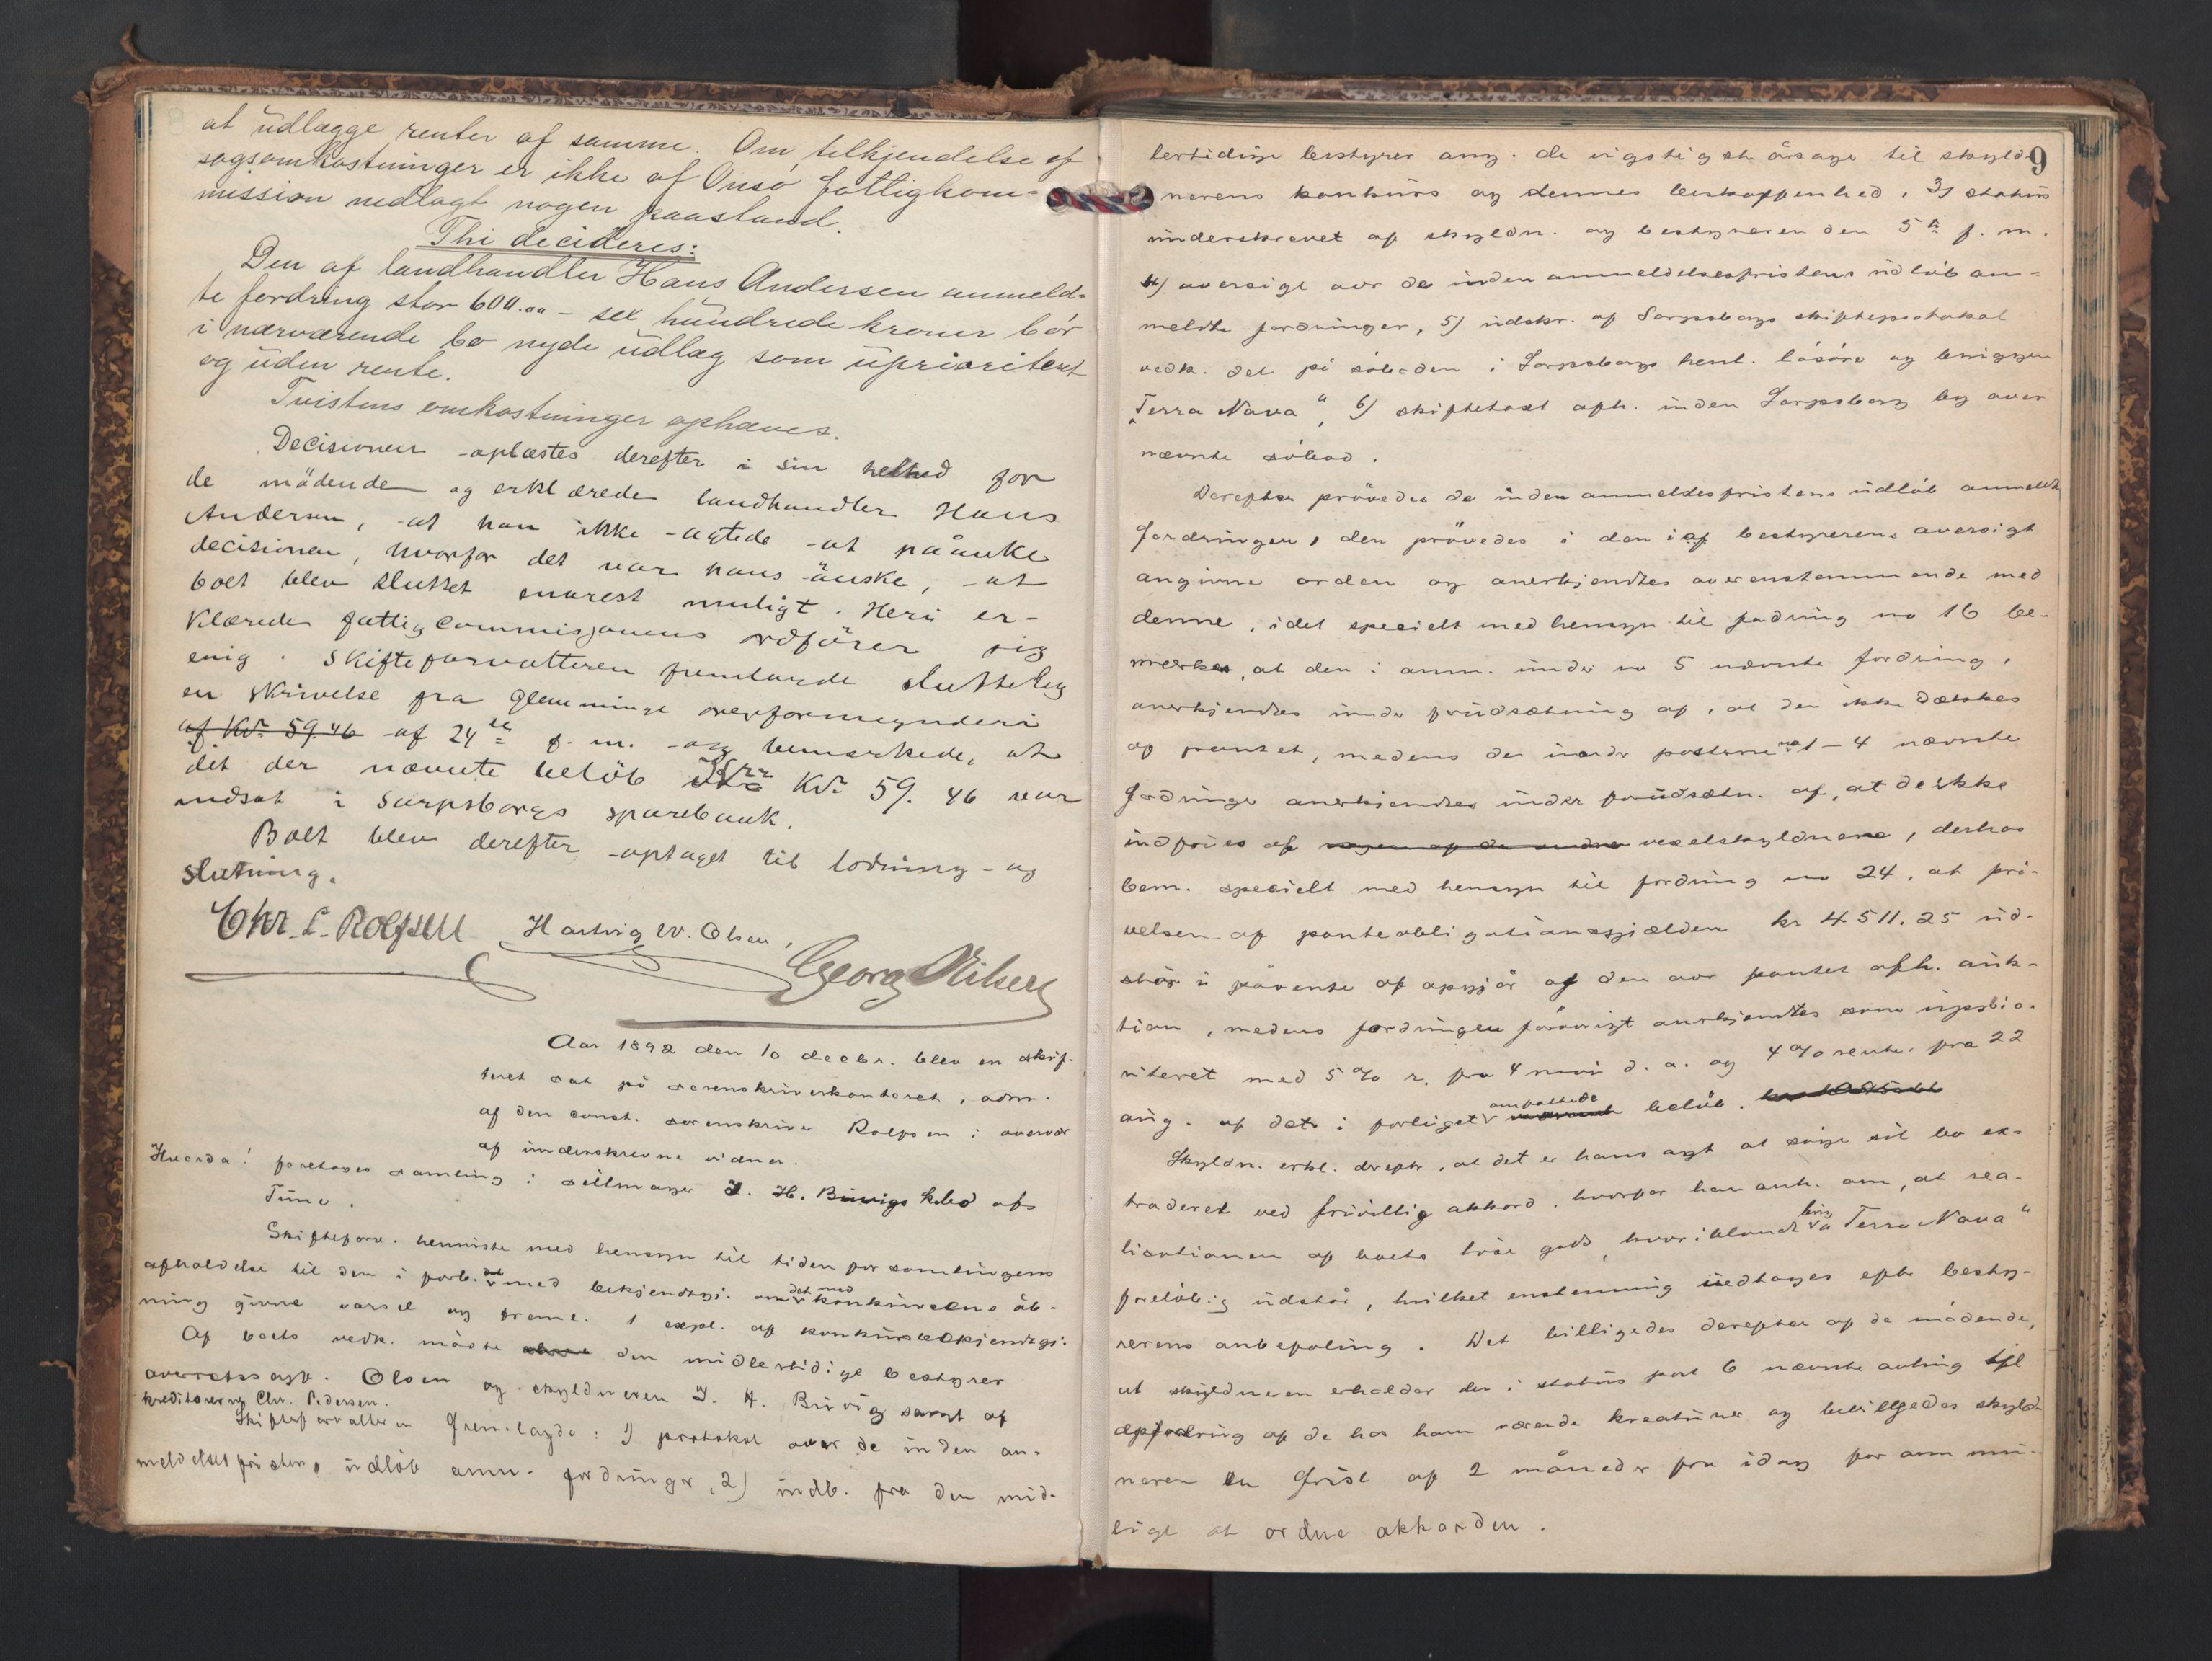 at udlægge renter af samme. Om tilkjendelse af
sagsomkostninger er ikke af Onsø fattigkom-
mission nedlagt nogen paastand.
Thi decideres:
Den af landhandler Hans Andersen anmeld-
te fordring stor 600.00 - sex hundrede kroner bør
i nærværende bo nyde udlæg som uprioriteret
og uden rente.
Tvistens omkostninger ophæves.
Decisionen oplæstes derefter i sin helhed for
de mödende og erklærede landhandler Hans
Andersen, at han ikke agtede at påanke
decisionen, hvorfor det var hans önske, at
boet blev sluttet snarest muligt. Heri er-
klærede fattigcommisjonens ordförer sig
enig. Skifteforvalteren fremlagde sluttelig
en skrivelse fra Glemminge overformynderi
af Kr. 59.46 af 24de f. m. og bemærkede, at
det der nævnte belöb Kr 59.46 var
indsat i Sarpsborgs sparebank.
Boet blev derefter optaget til lodning og
slutning.
Chr. L. Rolfsen Hartvig W. Olsen,
Georg Nilsen
Aar 1892 den 10 decbr. blev en skif-
teret sat på sorenskriverkontoret, adm.
af den const. sorenskriver Rolfsen i overvær
af underskrevne vidner.
Hvorda: foretoges samling i sillmager J. H. Buvigs kbo af
Tune.
Skifteforv. henviste med hensyn til tiden for samlingens
afholdelse til den i forb. det med bekjendtgj. om det med konkursens åb-
ning givne varsel og freml. 1 expl. af konkursbekjendtgj.
Af boets vedk. mödte den midlertidige bestyrer
overretssagf. Olsen og skyldneren J. H. Buvig samt af
kreditorerne Chr. Pedersen.
Skifteforvalteren fremlagde: 1) protokol over de inden an-
meldelsesfristens udlöb anm. fordringer, 2) indb. fra den mid-
9
lertidige bestyrer ang. de vigtigste årsager til skyld-
nerens konkurs og dennes beskaffenhed, 3) status
underskrevet af skyldn. og bestyreren den 5te f. m.
4) oversigt over de inden anmeldelsesfristens udlöb an-
meldte fordringer, 5) udskr. af Sarpsborgs skifteprotokol
vedk. det på söboden i Sarpsborg henl. lösöre og briggen
"Terra Nova", 6) skiftetaxt afh. inden Sarpsborg by over
nævnte söbod.
Derefter prövedes de inden anmeldesfristens udlöb anmeldte
fordringer, den prövedes i den i af bestyrerens oversigt
angivne orden og anerkjendtes overenstemmende med
denne, idet specielt med hensyn til fodring no 16 be-
mærkes, at den i anm. under no 5 nævnte fordring,
anerkjendtes under forudsætning af, at den ikke dækkes
af pantet, medens de under posterne no 1-4 nævnte
fordringer anerkjendtes under forudsætn. af, at de ikke
indfries af nogen af de andre vexelskyldnere, derhos
bem. specielt med hensyn til fordring no 24, at prö-
velsen af panteobligationsgjælden kr 4511.25 ud-
står i påvente af opgjör af den over pantet afh. auk-
tion, medens fordringen forövrigt anerkjendtes som uprio-
riteret med 5% r. fra 4 novi d. a. og 4% rente fra 22
aug. af det i forliget omfattede belöb.
Skyldn. erkl. derefter, at det er hans agt at söge sit bo ex-
traderet ved frivillig akkord, hvorfor han anh. om, at rea-
lisationen af boets löse gods, hvoriblandt brig "Terra Nova"
forelöbig udstår, hvilket enstemmig vedtages efter besty-
rerens anbefaling. Det billigedes derefter af de mödende,
at skyldneren erholder den i status post 6 nævnte avling til
opfodring af de hos ham værende kreaturer og bevilgedes skyld-
neren en frist af 2 måneder fra idag for om mu-
ligt at ordne akkorden.